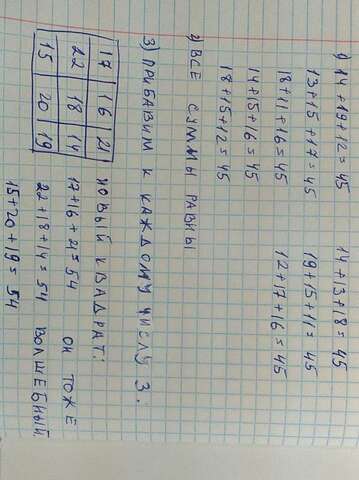 1) 14+19+12=45 14+13+18=45
13+15+17=45 19+15+11=45
18+11+16=45 12+17+16=45
14+15+16=45
18+15+12=45
2) ВСЕ СУММЫ РАВНЫ
3) ПРИБАВИМ К КАЖДОМУ ЧИСЛУ 3:
17 16 21 НОВЫЙ КВАДРАТ:
22 18 14 17+16+21=54 ОН ТОЖЕ
15 20 19 22+18+14=54 ВОЛШЕБНЫЙ
15+20+19=54